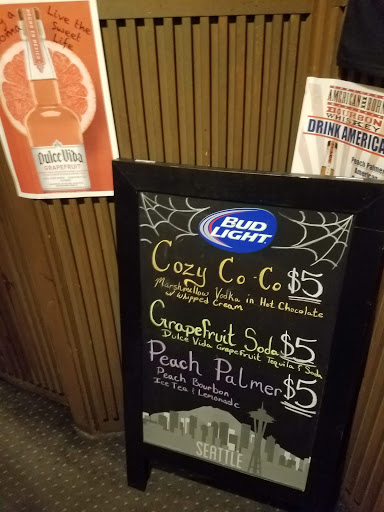 Live the
Sweet
Life
Dulce Vida
GRAPEFRUIT
AMERICAN BORN
BOURBON
WHISKEY
DRINK AMERICA
Peach Palmer
BUD
LIGHT
Cozy Co-Co $5
Marshmellow Vodka in Hot Chocolate
w/ whipped Cream
Grapefruit Soda $5
Dulce Vida Grapefruit Tequila & Soda
Peach Palmer $5
Peach Bourbon
Ice Tea & Lemonade
SEATTLE